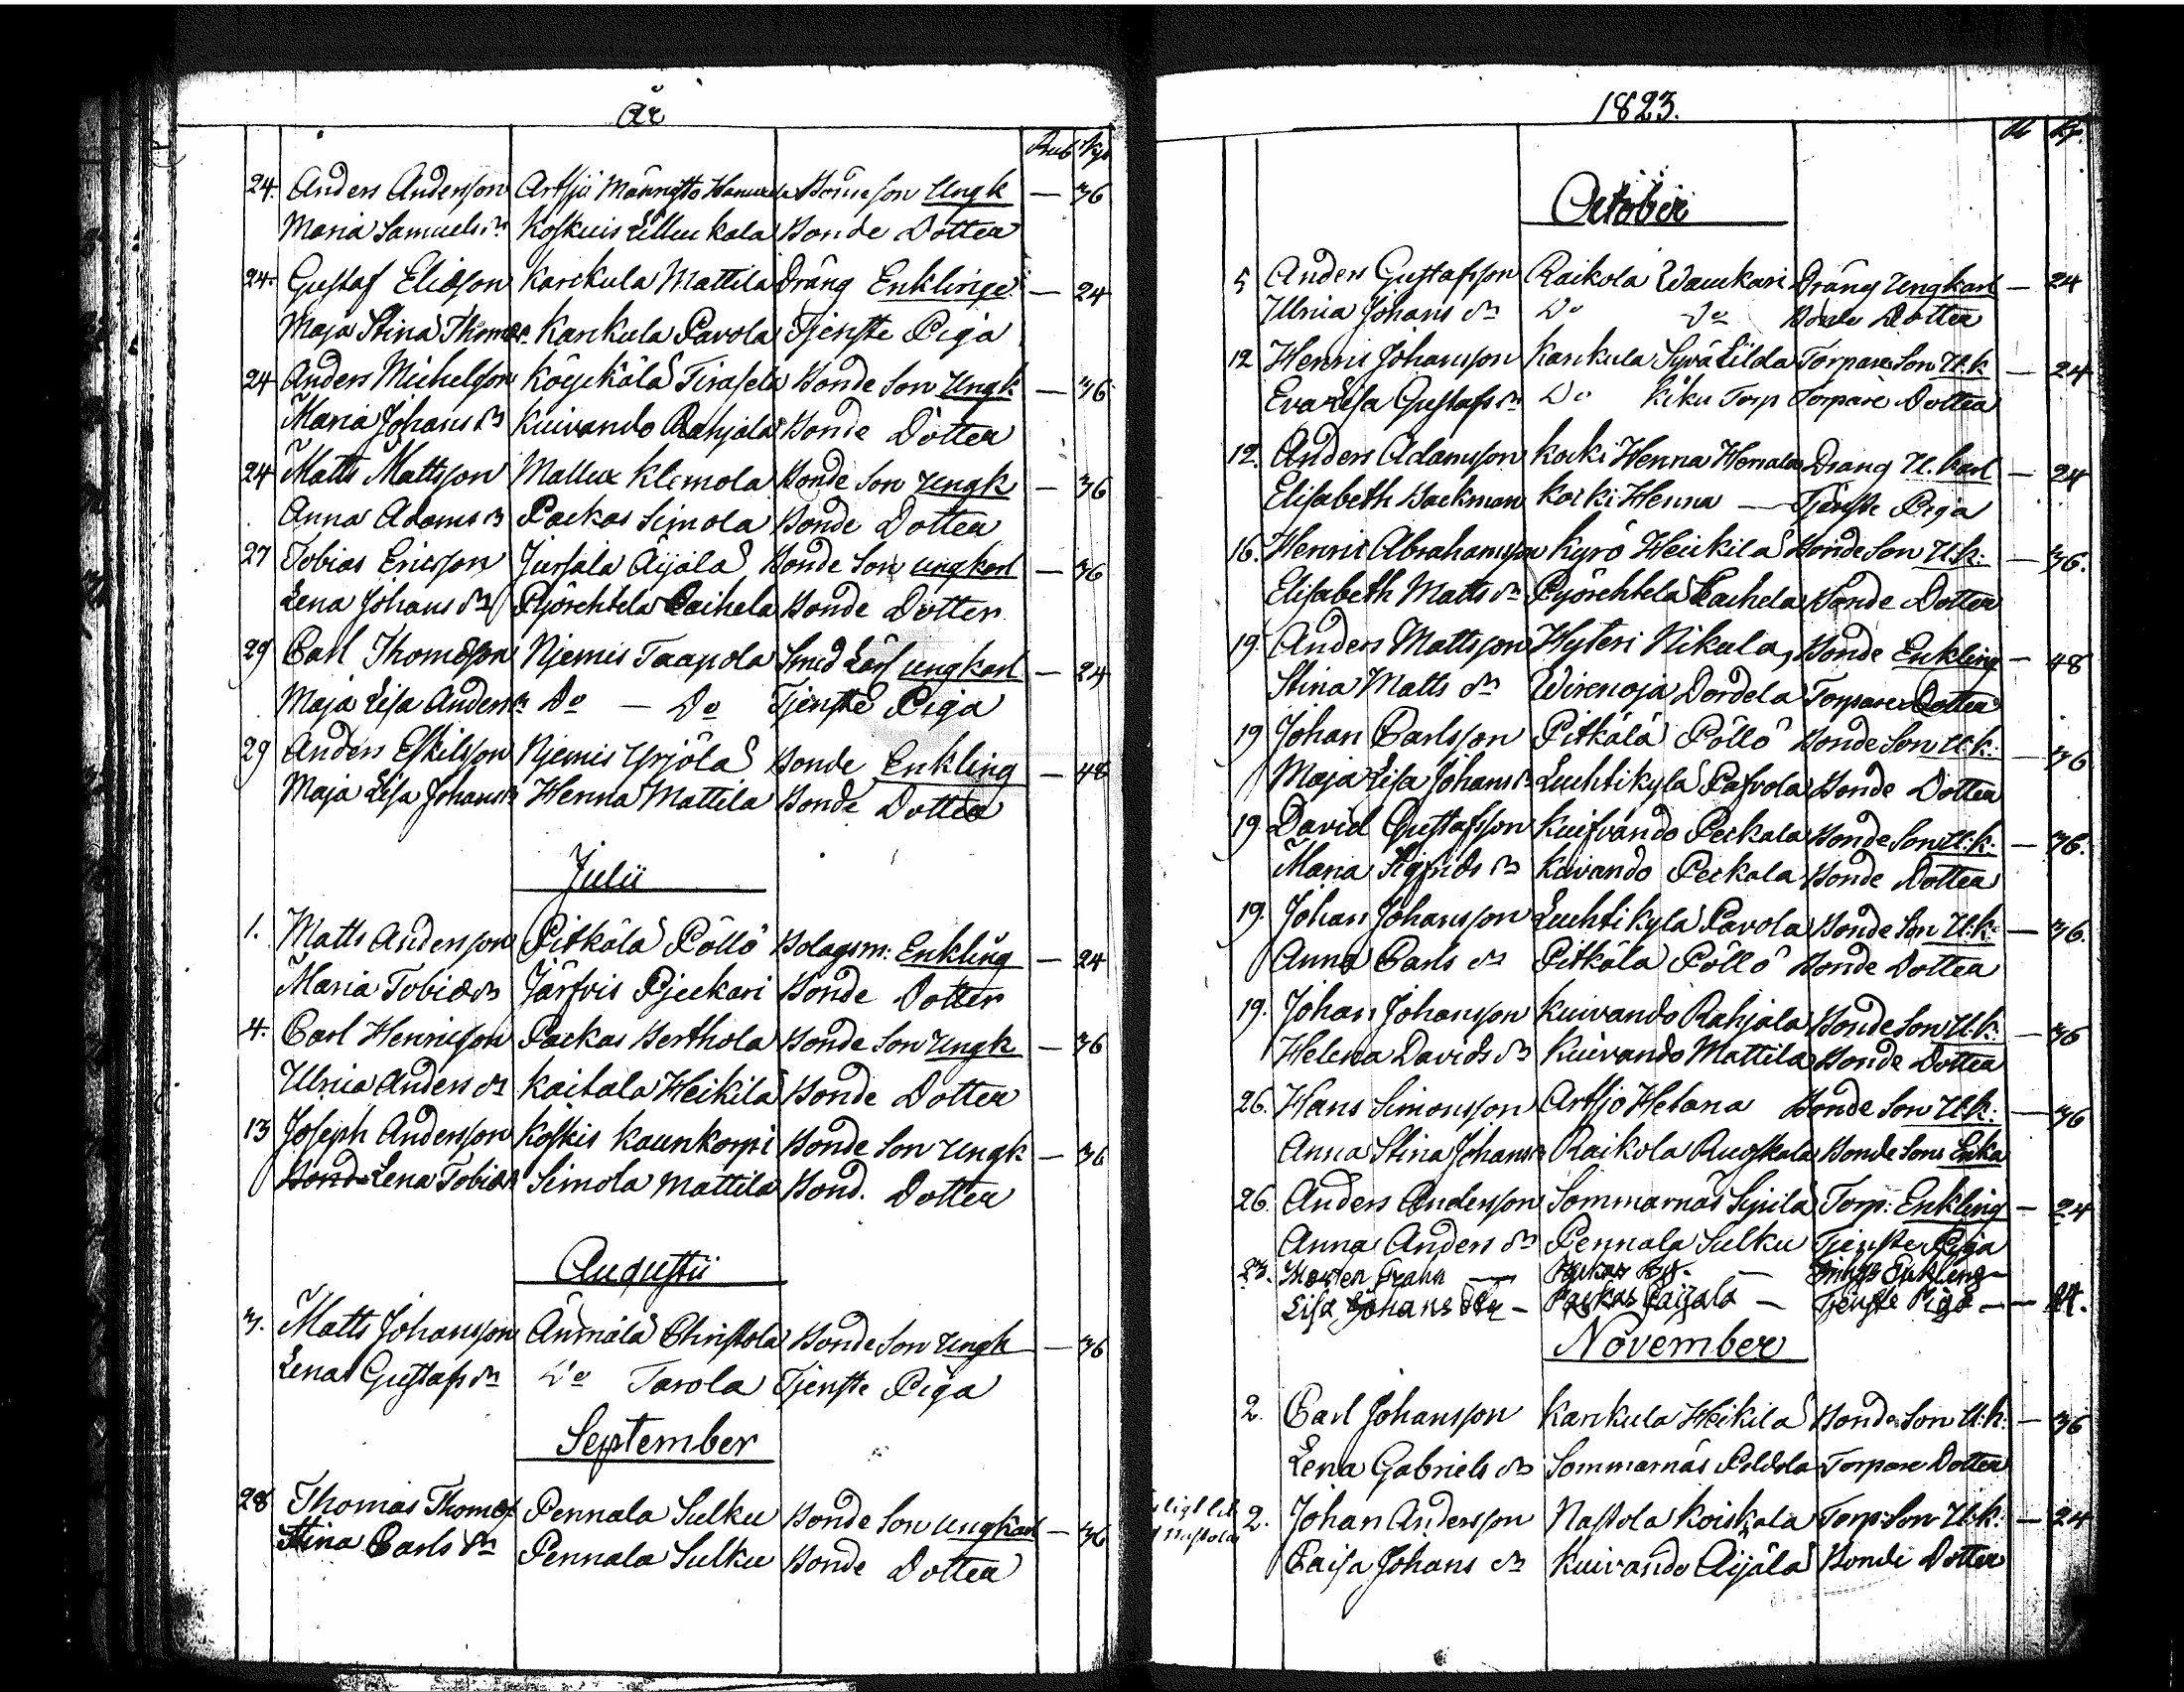 År
Rub Kop
24. Anders Andersson Artsjö Männistö Bonde Son Ungk — 36
Maria Samuels dr Koskuis Bonde Dotter
24. Gustaf Eliasson Karckula Mattila Dräng Enklinge — 24
Maja Stina Thomas Karckula Pavola Tjenste Piga
24 Anders Michelsson Köyckälä Tirasela Bonde Son Ungk — 36
Maria Johans dr Kuivando Rahjala Bonde Dotter
24 Matts Mattsson Mallux Klemola Bonde Son Ungk — 36
Anna Adams dr Packas Simola Bonde Dotter
27 Tobias Ericsson Jursala Äijälä Bonde Son ungkarl — 36
Lena Johans dr Pyörehtelä Laihela Bonde Dotter
29 Carl Thomasson Njemis Taapola Smed ungkarl — 24
Maja Lisa Anders dr Do — Do Tjenste Piga
29 Anders Eskilsson Njemis Yrjölä Bonde Enkling — 48
Maja Lisa Johans dr Henna Mattila Bonde Dotter
Julii
1. Matts Andersson Pitkälä Pöllö Bolagsm: Enkling — 24
Maria Tobias dr Järfvis Pjeckari Bonde Dotter
4. Carl Henricsson Packas Berthola Bonde Son Ungk — 36
Ulrica Anders dr Kaitala Heikilä Bonde Dotter
13 Joseph Andersson Koskis Kaunkorpi Bonde Son Ungk — 36
Bond Lena Tobias dr Simola Mattila Bond. Dotter
Augustii
3. Matts Johansson Ämmälä Christola Bonde Son Ungk — 36
Lena Gustafs dr Do Tarola Tjenste Piga
September
28 Thomas Thomas Pennala Sulku Bonde Son Ungkarl — 36
Stina Carls dr Pennala Sulku Bonde Dotter
1823.
R Kp.
October
5 Anders Gustafsson Raikola Dräng Ungkarl — 24
Ulrica Johans dr Do Do Bonde Dotter
12 Henric Johansson Karckula Torpare Son U.k — 24
Eva Lisa Gustafs dr Do Kiku Torp Torpare Dotter
12. Anders Adamsson Koski Henna Dräng U. karl — 24
Elisabeth Backman Koski Henna — Tjenste Piga
16. Henric Abrahamsson Kyrö Heickilä Bonde Son U:k: — 36.
Elisabeth Matts dr Pyörehtelä Laihela Bonde Dotter
19. Anders Mattsson Hyteri Nikula, Bonde Enkling — 48
Stina Matts dr Wirenoja Dordela Torpare Dotter
19 Johan Carlsson Pitkälä Pöllö Bonde Son U:k: — 36
Maja Lisa Johans dr Luchtikylä Pafvola Bonde Dotter
19. David Gustafsson Kuifvando Peckala Bonde Son U:k: — 36.
Maria Sigfrids dr Kuivando Peckala Bonde Dotter
19. Johan Johansson Luchtikylä Pavola Bonde Son U:k: — 36.
Anna Carls dr Pitkälä Pöllö Bonde Dotter
19. Johan Johansson Kuivando Rahjala Bonde Son U:k: — 36
Helena Davids dr Kuivando Mattila Bonde Dotter
26. Hans Simonsson Artsjö Bonde Son U:k: — 36
Anna Stina Johans dr Raikola Ruoskala Bonde Sons Enka
26. Anders Andersson Sommarnäs Torp: Enkling — 24
Anna Anders dr Pennala Sulku Tjenste Piga
23. Morten — Packas — Enkling —
Lisa Johans dr — Packas Paijala — Tjenste Piga — 24.
November
2. Carl Johansson Karckula Heikilä Bonde Son U:k: — 36
Lena Gabriels dr Sommarnäs Torpare Dotter
2. Johan Andersson Nastola Koiskala Torp: Son U:k: — 24
Caisa Johans dr Kuivando Äijälä Bonde Dotter